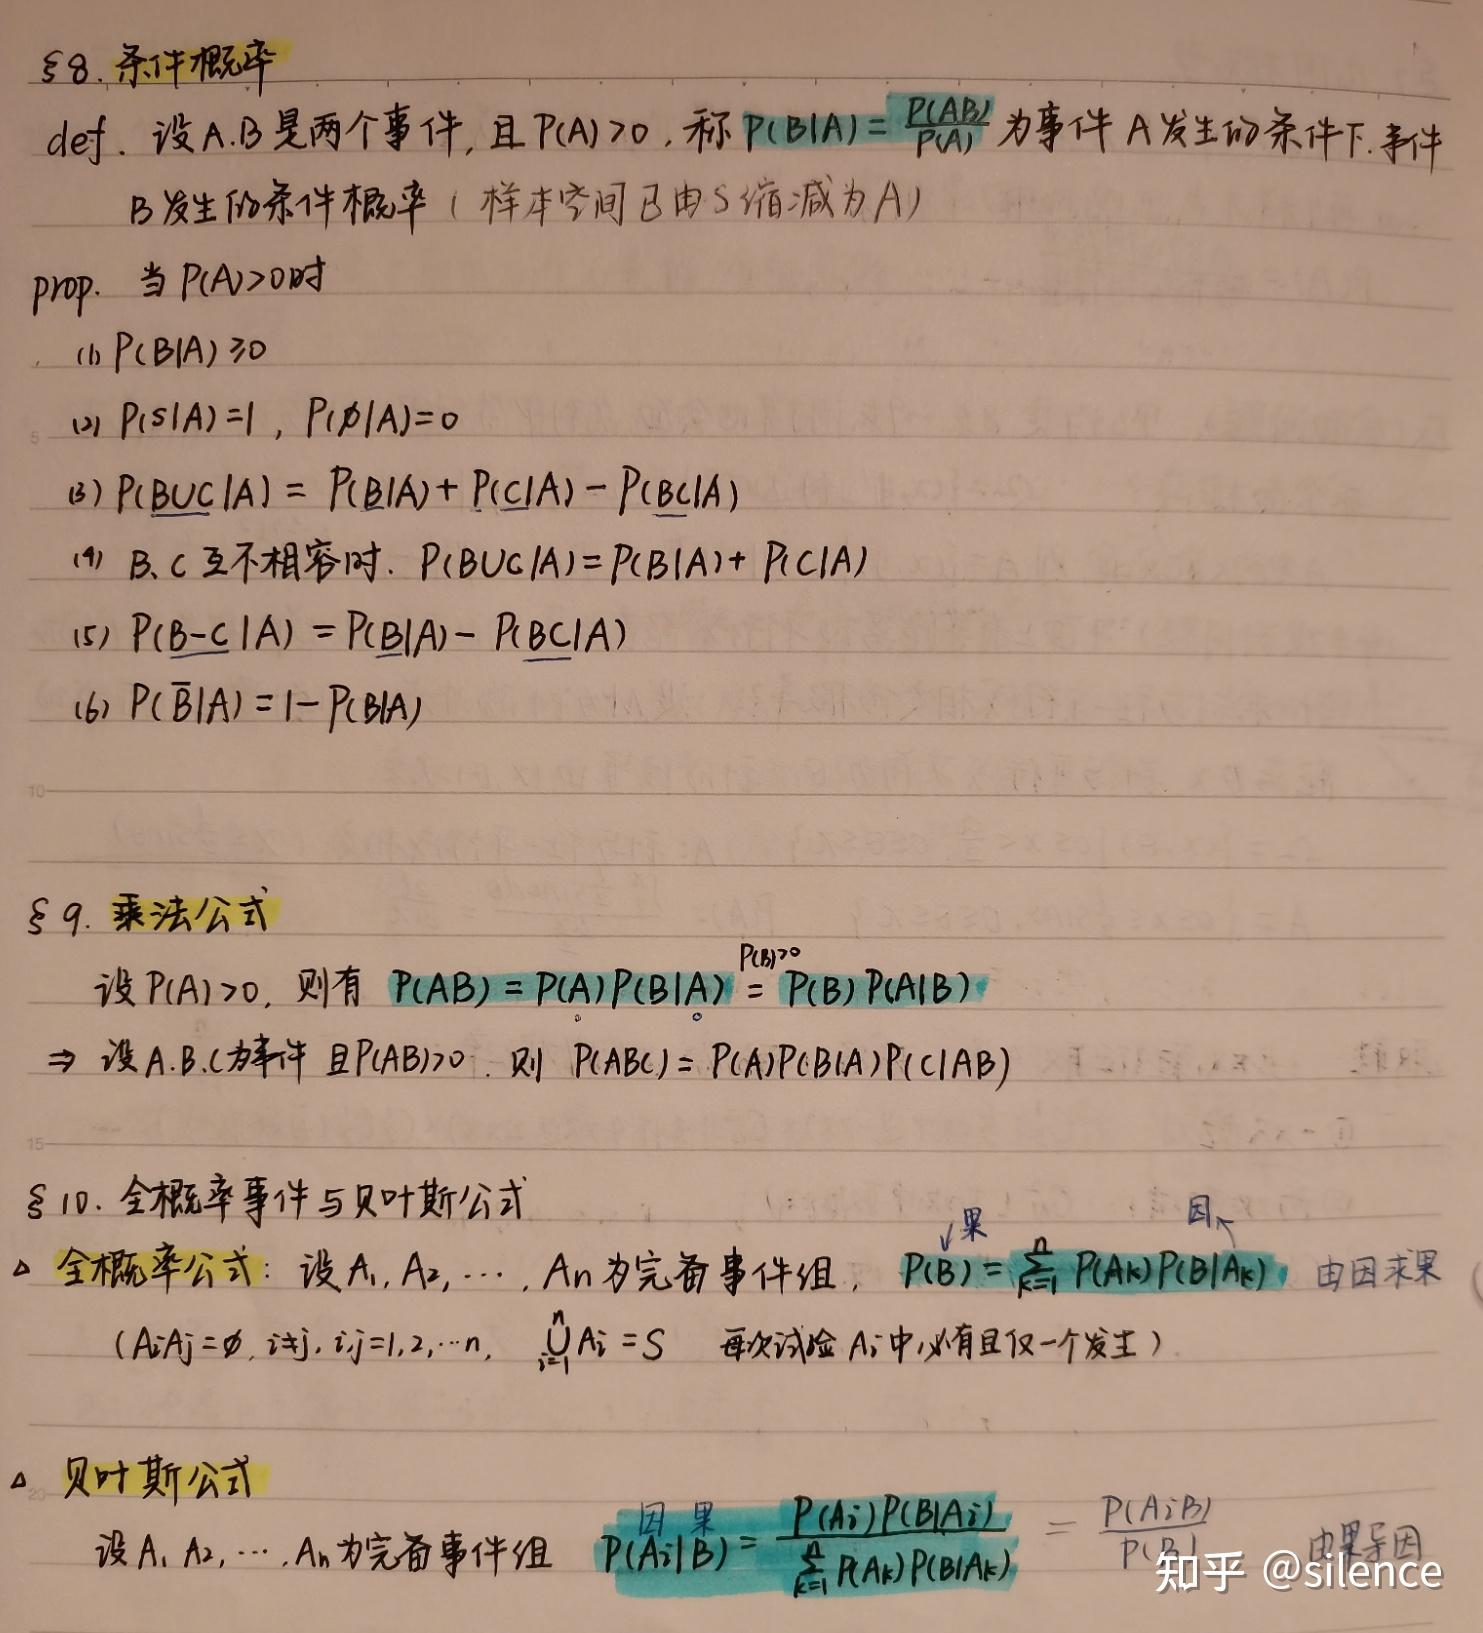 §8. 条件概率
def. 设A.B是两个事件, 且P(A)>0, 称P(B|A)=P(AB)/P(A) 为事件A发生的条件下.事件
B发生的条件概率（样本空间已由S缩减为A）
prop. 当P(A)>0时
(1) P(B|A)≥0
(2) P(S|A)=1, P(∅|A)=0
(3) P(B∪C|A) = P(B|A)+P(C|A)-P(BC|A)
(4) B、C互不相容时. P(B∪C|A)=P(B|A)+P(C|A)
(5) P(B-C|A)=P(B|A)-P(BC|A)
(6) P(B̅|A)=1-P(B|A)
§9. 乘法公式
P(B)>0
设P(A)>0, 则有 P(AB)=P(A)P(B|A)=P(B)P(A|B)
⇒ 设A.B.C为事件 且P(AB)>0. 则 P(ABC)=P(A)P(B|A)P(C|AB)
§10. 全概率事件与贝叶斯公式
果 因
△ 全概率公式: 设A₁, A₂, ⋯, An为完备事件组, P(B)=∑ₖ₌₁ⁿ P(Ak)P(B|Ak) 由因求果
(AiAj=∅, i≠j, i,j=1,2,⋯n, ⋃ᵢ₌₁ⁿ Ai=S 每次试验Ai中必有且仅一个发生)
△ 贝叶斯公式
因 果
设A₁ A₂, ⋯, An为完备事件组 P(Ai|B)=P(Ai)P(B|Ai)/∑ₖ₌₁ⁿ P(Ak)P(B|Ak) = P(AiB)/P(B) 由果导因
知乎 @silence